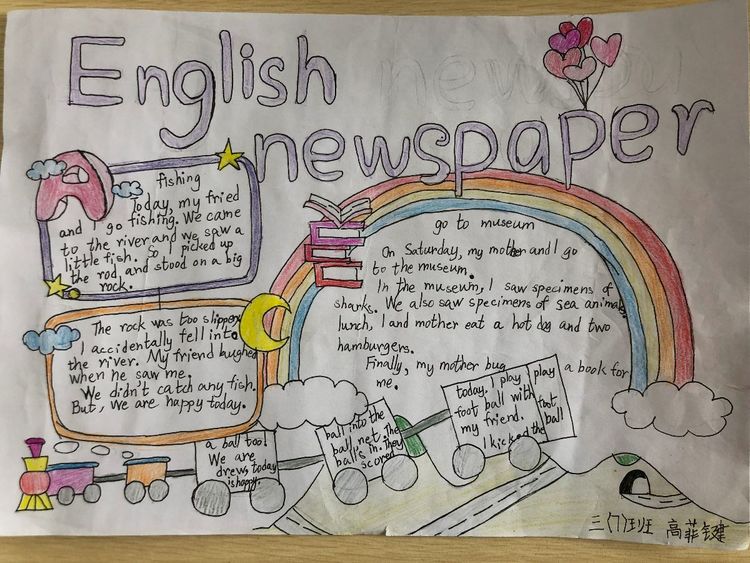 English
newspaper
fishing
Today, my fried
and I go fishing. We came
to the river and we saw a
little fish. So I picked up
the rod, and stood on a big
rock.
The rock was too slippery
I accidentally fell into
the river. My friend laughed
when he saw me.
We didn't catch any fish.
But, we are happy today.
go to museum
On Saturday, my mother and I go
to the museum.
In the museum, I saw specimens of
sharks. We also saw specimens of sea animals.
lunch, I and mother eat a hot dog and two
hamburgers.
Finally, my mother bug a book for
me.
play
foot
ball
today. I play
foot ball with
my friend.
I kicked the
ball into the
ball net. The
ball's in. They
scored
a ball too!
We are
drew, today
is happy.
三(7)班 高菲